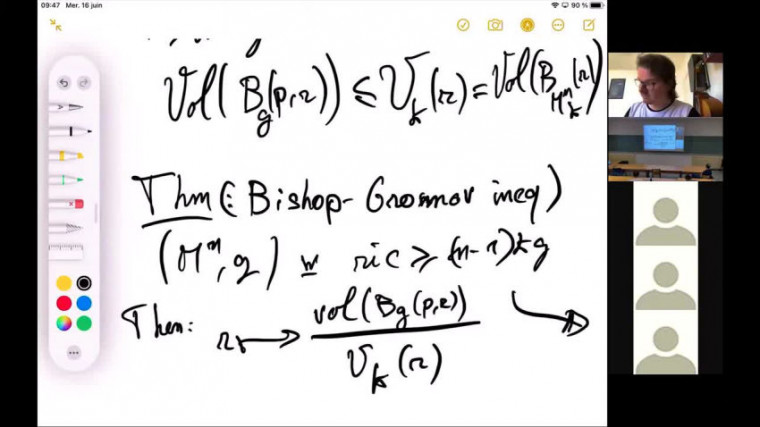 09:47 Mer. 16 juin
90 %
Vol(B_g(p,r)) ≤ V_k(r) = Vol(B_{M^n_k}(r))
Thm (: Bishop-Gromov ineq)
(M^n, g) w ric ≥ (n-1)kg
Then: r ↦ vol(B_g(p,r)) / V_k(r) ↘